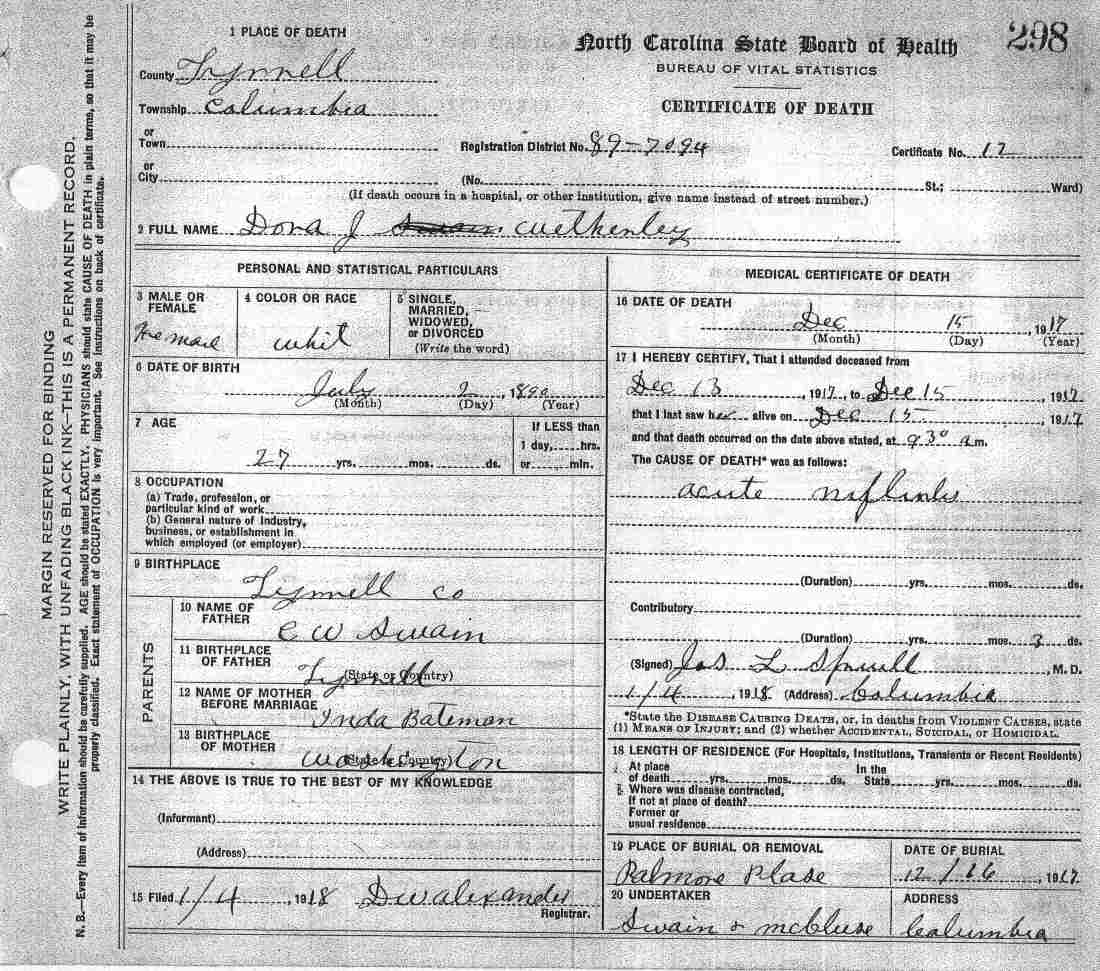 298
North Carolina State Board of Health
BUREAU OF VITAL STATISTICS
CERTIFICATE OF DEATH
1 PLACE OF DEATH
County Tyrrell
Township Columbia
or
Town
Registration District No. 89-7094 Certificate No. 12
or
City (No. St.; Ward)
(If death occurs in a hospital, or other institution, give name instead of street number.)
2 FULL NAME Dora J Swain
PERSONAL AND STATISTICAL PARTICULARS
3 MALE OR FEMALE
Femail
4 COLOR OR RACE
whit
5 SINGLE,
MARRIED,
WIDOWED,
or DIVORCED
(Write the word)
6 DATE OF BIRTH
July 2, 1890
(Month) (Day) (Year)
7 AGE
27 yrs. mos. ds.
If LESS than
1 day, hrs.
or min.
8 OCCUPATION
(a) Trade, profession, or
particular kind of work
(b) General nature of Industry,
business, or establishment in
which employed (or employer)
9 BIRTHPLACE
Tyrrell co
PARENTS
10 NAME OF
FATHER
C W Swain
11 BIRTHPLACE
OF FATHER
(State or Country)
Tyrrell
12 NAME OF MOTHER
BEFORE MARRIAGE
Inda Bateman
13 BIRTHPLACE
OF MOTHER
(State or Country)
Washington
14 THE ABOVE IS TRUE TO THE BEST OF MY KNOWLEDGE
(Informant)
(Address)
15 Filed 1/4, 1918 D W Alexander
Registrar.
MEDICAL CERTIFICATE OF DEATH
16 DATE OF DEATH
Dec 15, 1917
(Month) (Day) (Year)
17 I HEREBY CERTIFY, That I attended deceased from
Dec 13 1917, to Dec 15, 1917
that I last saw her alive on Dec 15, 1917
and that death occurred on the date above stated, at 930 a m.
The CAUSE OF DEATH* was as follows:
acute
(Duration) yrs. mos. ds.
Contributory
(Duration) yrs. mos. 3 ds.
(Signed) Jas L Spruill, M. D.
1/4, 1918 (Address) Columbia
*State the DISEASE CAUSING DEATH, or, in deaths from VIOLENT CAUSES, state
(1) MEANS OF INJURY; and (2) whether ACCIDENTAL, SUICIDAL, or HOMICIDAL.
18 LENGTH OF RESIDENCE (For Hospitals, Institutions, Transients or Recent Residents)
At place
of death yrs. mos. ds.
In the
State yrs. mos. ds.
Where was disease contracted,
If not at place of death?
Former or
usual residence
19 PLACE OF BURIAL OR REMOVAL
Palmore Plase
DATE OF BURIAL
12/16, 1917
20 UNDERTAKER
Swain & McCluse
ADDRESS
Columbia
MARGIN RESERVED FOR BINDING
WRITE PLAINLY, WITH UNFADING BLACK INK—THIS IS A PERMANENT RECORD.
N. B.—Every item of information should be carefully supplied. AGE should be stated EXACTLY. PHYSICIANS should state CAUSE OF DEATH in plain terms, so that it may be
properly classified. Exact statement of OCCUPATION is very important. See instructions on back of certificate.